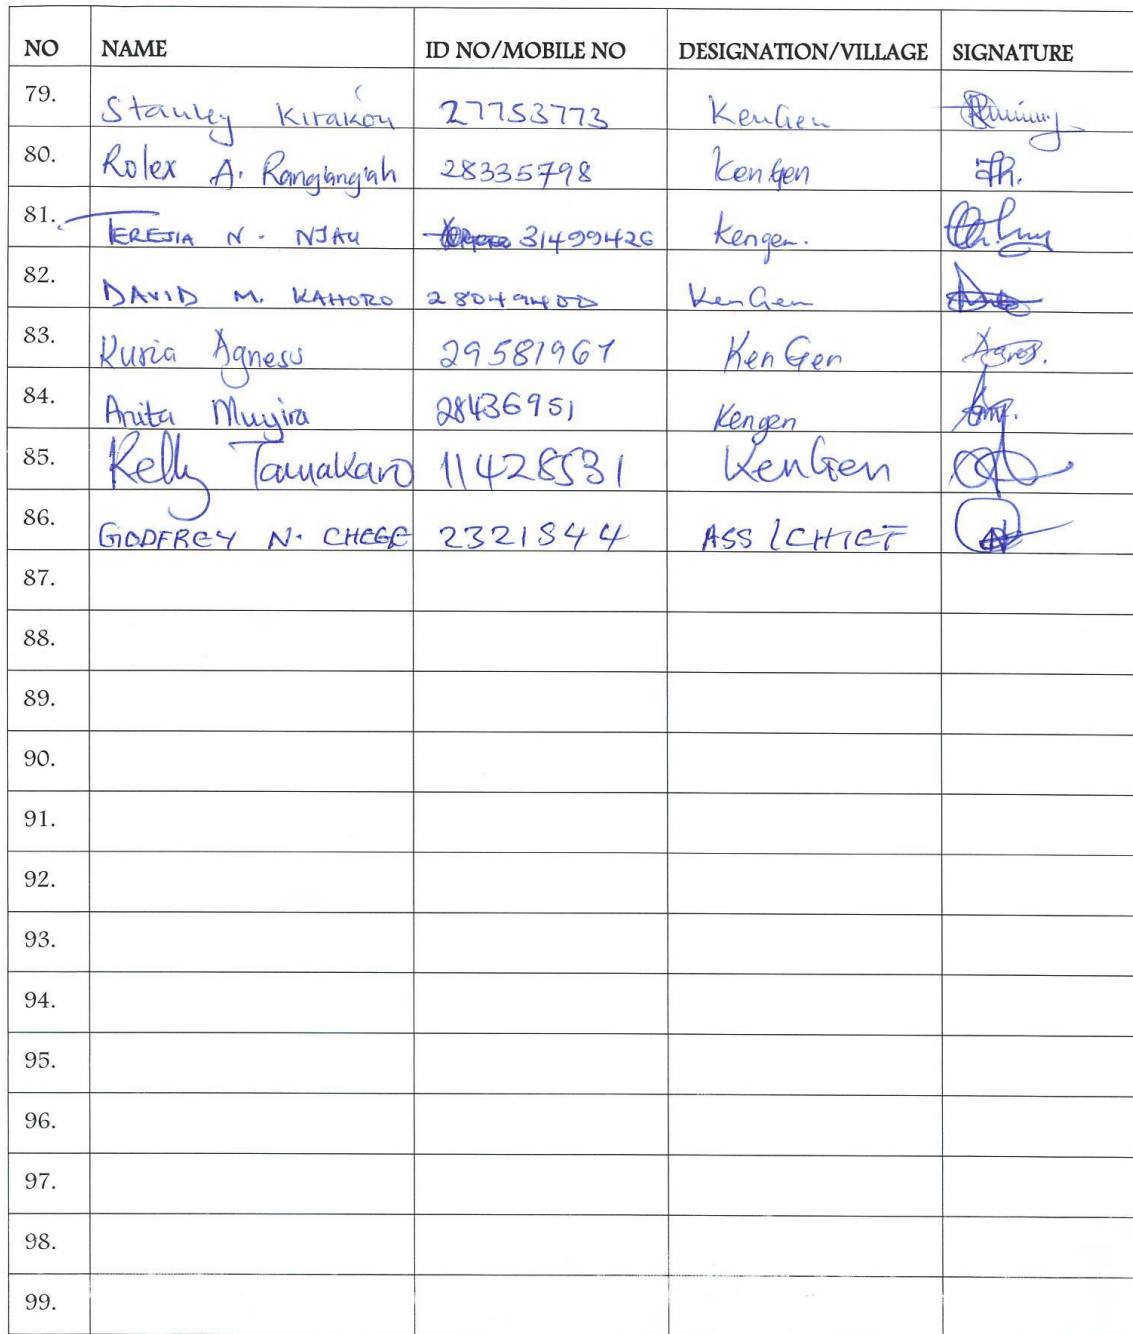 NO NAME ID NO/MOBILE NO DESIGNATION/VILLAGE SIGNATURE
79. Stanley Kirakou 27753773 KenGen
80. Rolex A. 28335798 KenGen
81. TERESIA N. NJAU 31499426 Kengen.
82. DAVID M. KAHORO 28049400 KenGen
83. Kuria Agness 29581967 KenGen
84. Anita 28436951 Kengen
85. Kelly 11428531 KenGen
86. GODFREY N. CHEGE 2321844 ASS/CHIEF
87.
88.
89.
90.
91.
92.
93.
94.
95.
96.
97.
98.
99.